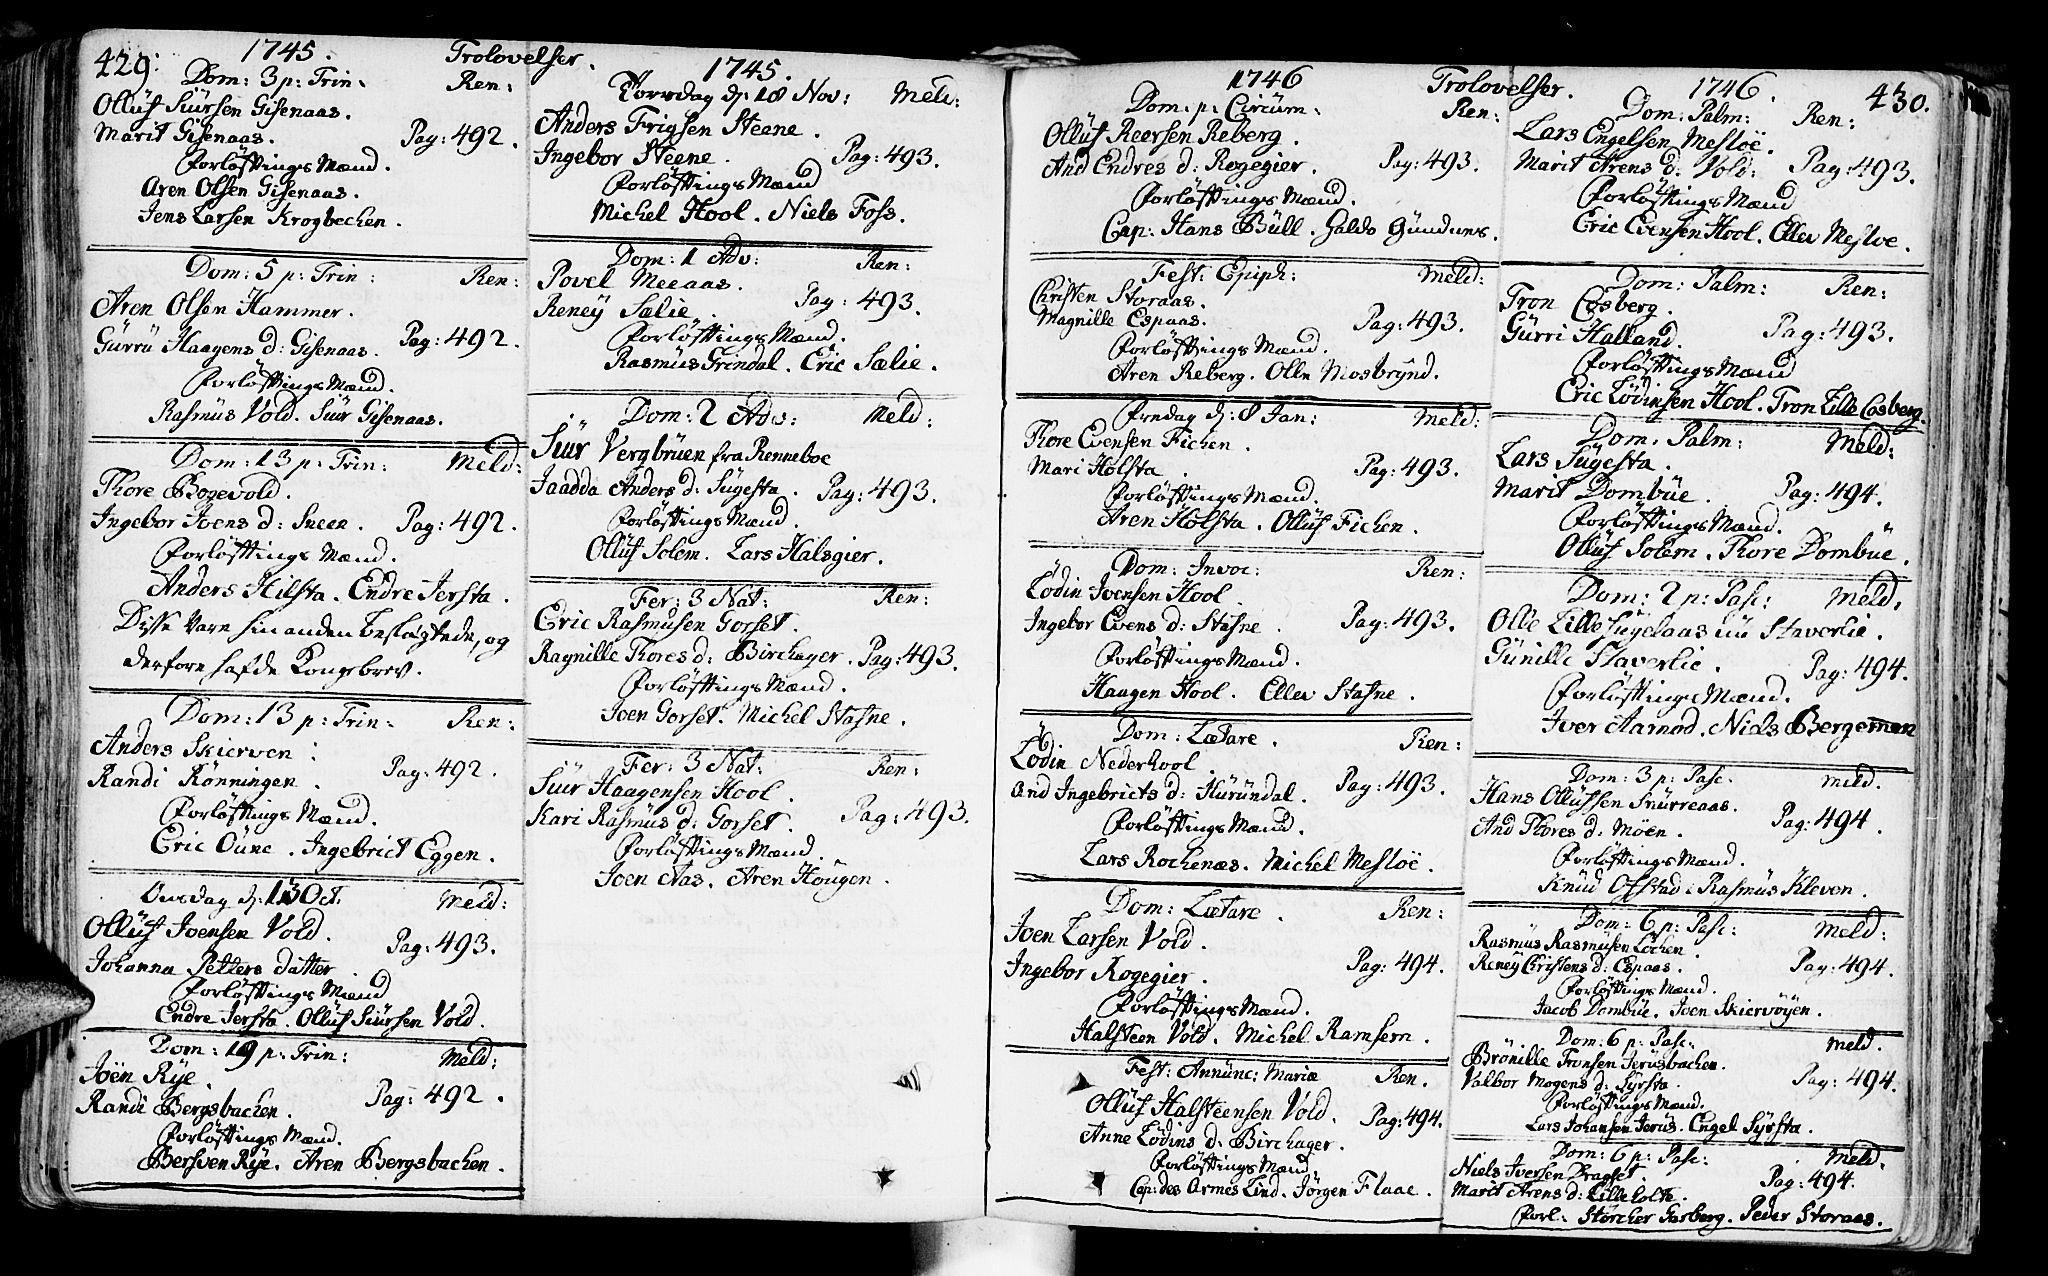 429. 1745. Trolovelser.
Dom: 3 p: Trin: Ren:
Olluf Siursen Gisenaas.
Marit Gisenaas. Pag: 492.
Forløftings Mænd.
Aren Olsen Gisenaas.
Jens Larsen Krogbechen.
Dom: 5 p: Trin: Ren:
Aren Olsen Hammer.
Gürrü Haagens d: Gisenaas. Pag: 492.
Forløftings Mænd.
Rasmus Vold. Siur Gisenaas.
Dom: 13 p: Trin: Meld:
Thore Bogevold.
Ingebor Joens d: Sneen. Pag: 492.
Forløftings Mænd.
Anders Hilsta. Endre Jersta.
Disse vare hinanden beslægtede, og
derfore hafde Kongebrev.
Dom: 13 p: Trin: Ren:
Anders Skierven
Randi Rönningen. Pag: 492.
Forløftings Mænd.
Eric Oüne. Ingebrict Eggen.
Onsdag d: 13 Oct. Meld:
Olluf Joensen Vold.
Johanna Petters datter. Pag: 493.
Forløftings Mænd
Endre Jersta. Olluf Siursen Vold.
Dom: 19 p: Trin: Meld:
Joën Rÿe.
Randi Bergsbachen. Pag: 492.
Forløftings Mænd.
Bersven Rÿe. Aren Bergsbachen.
1745.
Torsdag d: 18 Nov: Meld:
Anders Frigsen Steene.
Ingebor Steene. Pag: 493.
Forløftings Mænd
Michel Hool. Niels Foss.
Dom: 1 Adv: Ren:
Povel Meeaas.
Reneÿ Sælie. Pag: 493.
Forløftings Mænd.
Rasmus Grendal. Eric Sælie.
Dom: 2 Adv: Meld:
Siur Vergbrüen fra Renneboe
Jaadda Anders d: Sügesta. Pag: 493.
Forløftings Mænd.
Olluf Solem. Lars Halsgier.
Fer: 3 Nat: Ren:
Eric Rasmusen Gorset.
Ragnille Thores d: Birchager. Pag: 493.
Forløftings Mænd.
Joen Gorset. Michel Stasne.
Fer: 3 Nat: Ren:
Siur Haagensen Hool.
Kari Rasmus d: Gorset. Pag: 493.
Forløftings Mænd.
Joen Aas. Aren Höugen.
1746 Trolovelser.
Dom: p: Circum: Ren:
Olluf Reersen Reberg.
And Endres d: Rogegier. Pag: 493.
Forløftings Mænd.
Cap: Hans Büll. Haldo Gündnes.
Fest: Epiph: Meld:
Christen Storaas.
Magnille Espaas. Pag: 493.
Forløftings Mænd.
Aren Reberg. Olle Mosbrÿnd.
Fredag d: 8 Jan: Meld:
Thore Evensen Fichen.
Mari Holsta. Pag: 493.
Forløftings Mænd.
Aren Holsta. Olluf Fichen.
Dom: Invoc: Ren:
Lödin Joensen Hool
Ingebor Evens d: Stasne. Pag: 493.
Forløftings Mænd.
Haagen Hool. Ellev Stasne.
Dom: Lætare. Ren:
Lödin Nederhool
And Ingebricts d: Hüründal. Pag: 493.
Forløftings Mænd.
Lars Rochenæs. Michel Mesloe.
Dom: Lætare. Ren:
Joen Larsen Vold.
Ingebor Rogegier. Pag: 494.
Forløftings Mænd.
Halsteen Vold. Michel Ramsem.
Fest: Annunc: Mariæ Ren.
Olluf Halsteensen Vold.
Anne Lödins d: Birchager. Pag: 494.
Forløftings Mænd.
Cap: des Armes Lind. Jörgen Flaae.
1746. 430.
Dom: Palm: Ren:
Lars Engelsen Mesloë.
Marit Arens d: Vold: Pag: 493.
Forløftings Mænd
Eric Evensen Hool. Ellev Mesloe.
Dom: Palm: Ren:
Tron Cosberg.
Gürri Halland. Pag: 493.
Forløftings Mænd
Eric Lödinsen Hool. Tron Lille Cosberg.
Dom: Palm: Meld:
Lars Sügesta.
Marit Dombüe. Pag: 494.
Forløftings Mænd.
Olluf Solem. Thore Dombüe.
Dom: 2 p: Pasc: Meld.
Olle Lille Sügelaas nu Staverlie.
Günille Staverlie. Pag: 494.
Forløftings Mænd.
Iver Aamod. Niels Bergeman
Dom: 3 p: Pasc. Meld.
Hans Ollufsen Snürreaas.
And Thores d: Möen. Pag: 494.
Forløftings Mænd.
Knüd Ofstad. Rasmus Kleven.
Dom: 6 p: Pasc: Meld:
Rasmus Rasmusen Löchen.
Reneÿ Christens d: Espaas. Pag: 494.
Forløftings Mænd.
Jacob Dombüe. Joen Skiervöyen.
Dom: 6 p: Pasc: Meld.
Brönille Tronsen Jerüsbachen.
Valbor Mogens d: Sÿrsta. Pag: 494.
Forløftings Mænd.
Lars Johansen Jerüs. Engel Sÿrsta.
Dom: 6 p: Pasc: Meld.
Niels Iversen Dragset.
Marit Arens d: Lilleholte. Pag: 494.
Forl: Störcher Farberg. Peder Storaas.